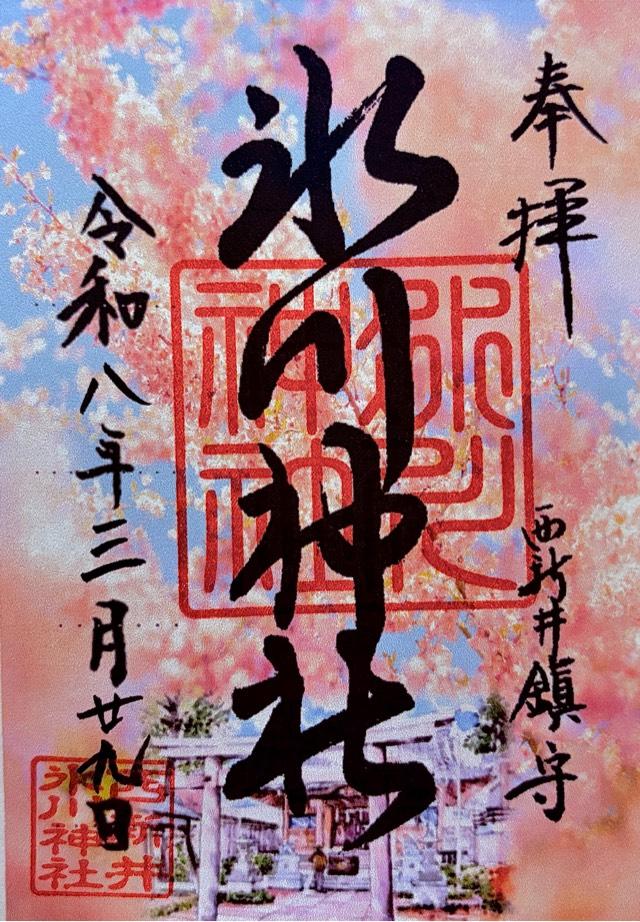 奉拝
西新井鎮守
氷川神社
令和八年三月廿九日
西新井
氷川神社